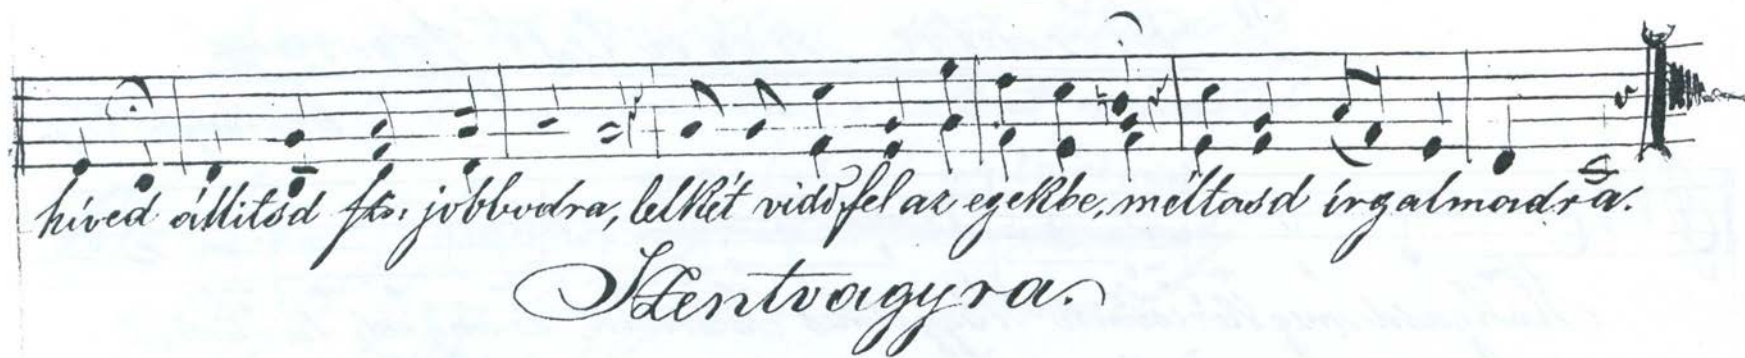 híved állitsd fk: jobbodra, lelkét vidd fel az egekbe, méltasd irgalmadra.
Szentvagyra.